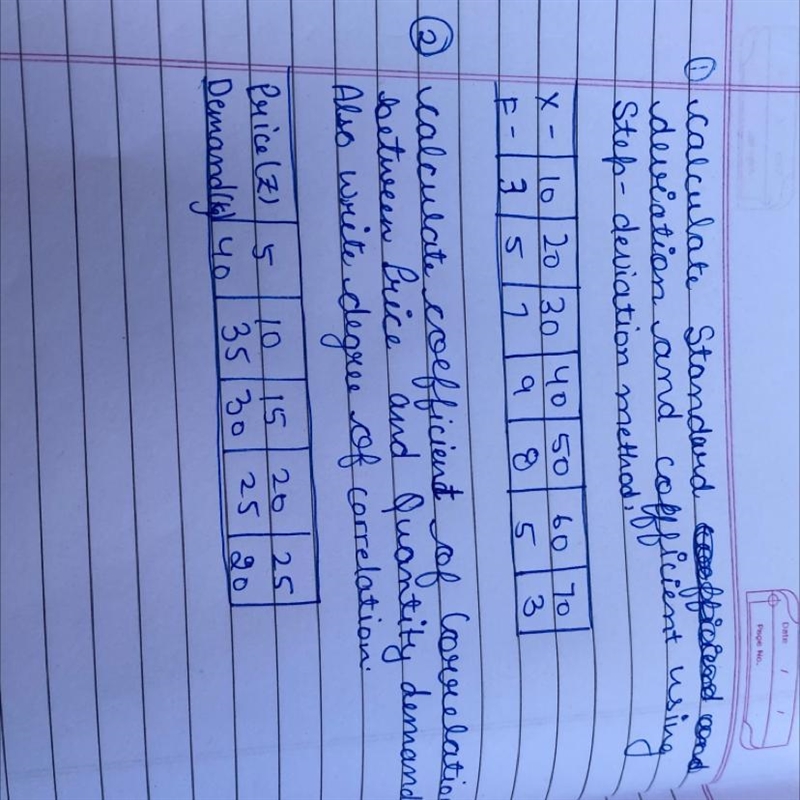 Date / /
Page No.
① Calculate Standard and
deviation and cofficient using
Step-deviation method,
X - 10 20 30 40 50 60 70
F - 3 5 7 9 8 5 3
② Calculate coefficient of Correlation
between Price and Quantity demand
Also write degree of correlation.
Price (₹) 5 10 15 20 25
Demand(kg) 40 35 30 25 20